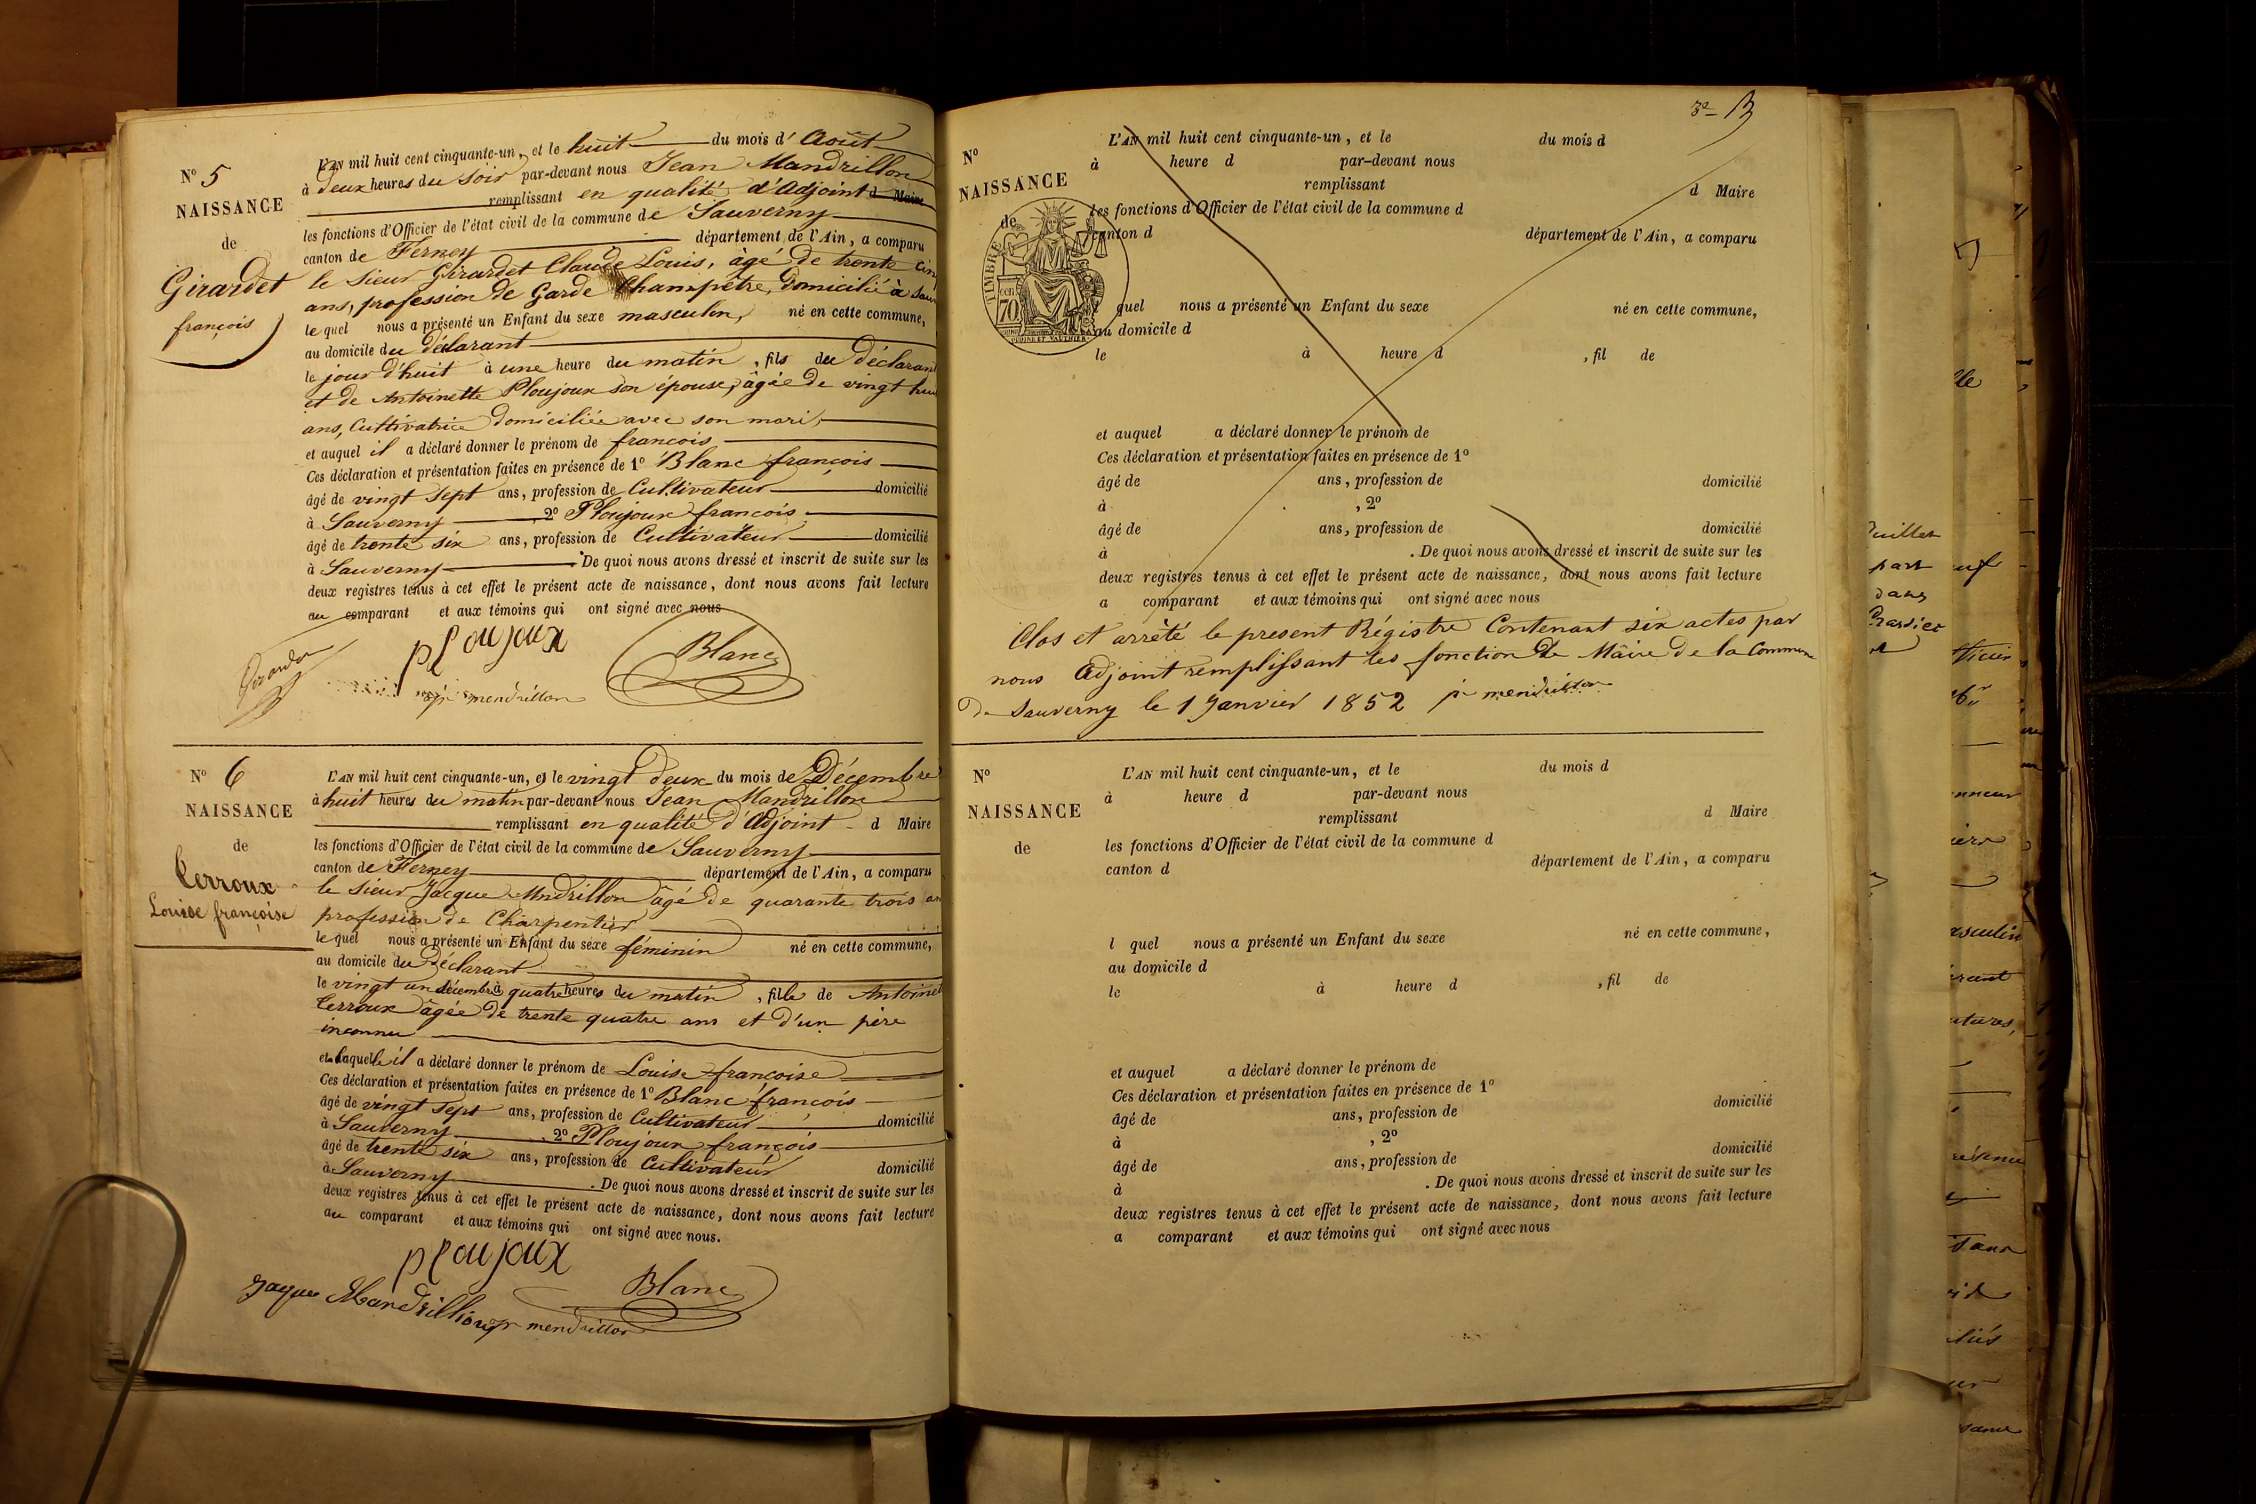 N° 5
NAISSANCE
de
Girardet
françois
L'AN mil huit cent cinquante-un, et le huit du mois d' Août
à deux heures du soir par-devant nous Jean Mandrillon
remplissant en qualité d'Adjoint d Maire
les fonctions d'Officier de l'état civil de la commune de Sauverny
canton de Ferney département de l'Ain, a comparu
le Sieur Girardet Claude Louis, âgé de trente cinq
ans, profession de Garde Champêtre, domicilié à Sauv
le quel nous a présenté un Enfant du sexe masculin, né en cette commune,
au domicile du déclarant
le jour d'huit à une heure du matin, fils du déclarant
et de Antoinette Ploujoux son épouse, âgée de vingt huit
ans, Cultivatrice domiciliée avec son mari,
et auquel il a déclaré donner le prénom de françois
Ces déclaration et présentation faites en présence de 1° Blanc françois
âgé de vingt sept ans, profession de Cultivateur domicilié
à Sauverny 2° Ploujoux françois
âgé de trente six ans, profession de Cultivateur domicilié
à Sauverny De quoi nous avons dressé et inscrit de suite sur les
deux registres tenus à cet effet le présent acte de naissance, dont nous avons fait lecture
au comparant et aux témoins qui ont signé avec nous
ploujoux Blanc
mendrillon
N° 6
NAISSANCE
de
Cerroux
Louise françoise
L'AN mil huit cent cinquante-un, et le vingt deux du mois de Décembre
à huit heures du matin par-devant nous Jean Mandrillon
remplissant en qualité d'Adjoint d Maire
les fonctions d'Officier de l'état civil de la commune de Sauverny
canton de Ferney département de l'Ain, a comparu
le Sieur Jacque Mndrillon âgé de quarante trois an
profession de Charpentier
le quel nous a présenté un Enfant du sexe féminin né en cette commune,
au domicile du déclarant
le vingt un décembre à quatre heures du matin, fille de Antoinet
Cerroux âgée de trente quatre ans et d'un père
inconnu
et laquelle il a déclaré donner le prénom de Louise françoise
Ces déclaration et présentation faites en présence de 1° Blanc françois
âgé de vingt sept ans, profession de Cultivateur domicilié
à Sauverny 2° Ploujoux françois
âgé de trente six ans, profession de Cultivateur domicilié
à Sauverny. De quoi nous avons dressé et inscrit de suite sur les
deux registres tenus à cet effet le présent acte de naissance, dont nous avons fait lecture
au comparant et aux témoins qui ont signé avec nous.
ploujoux
Blanc
Jaques Mandrillion mendrillon
N°
NAISSANCE
de
TIMBRE
70
L'AN mil huit cent cinquante-un, et le du mois d
à heure d par-devant nous
remplissant d Maire
les fonctions d'Officier de l'état civil de la commune d
canton d département de l'Ain, a comparu
quel nous a présenté un Enfant du sexe né en cette commune,
au domicile d
le à heure d , fil de
et auquel a déclaré donner le prénom de
Ces déclaration et présentation faites en présence de 1°
âgé de ans, profession de domicilié
à , 2°
âgé de ans, profession de domicilié
à . De quoi nous avons dressé et inscrit de suite sur les
deux registres tenus à cet effet le présent acte de naissance, dont nous avons fait lecture
a comparant et aux témoins qui ont signé avec nous
Clos et arrêté le present Régistre Contenant six actes par
nous Adjoint remplissant les fonction de Mâire de la Commune
De Sauverny le 1 Janvier 1852 mendrillon
N°
NAISSANCE
de
L'AN mil huit cent cinquante-un, et le du mois d
à heure d par-devant nous
remplissant d Maire
les fonctions d'Officier de l'état civil de la commune d
canton d département de l'Ain, a comparu
l quel nous a présenté un Enfant du sexe né en cette commune,
au domicile d
le à heure d , fil de
et auquel a déclaré donner le prénom de
Ces déclaration et présentation faites en présence de 1°
âgé de ans, profession de domicilié
à , 2°
âgé de ans, profession de domicilié
à . De quoi nous avons dressé et inscrit de suite sur les
deux registres tenus à cet effet le présent acte de naissance, dont nous avons fait lecture
a comparant et aux témoins qui ont signé avec nous